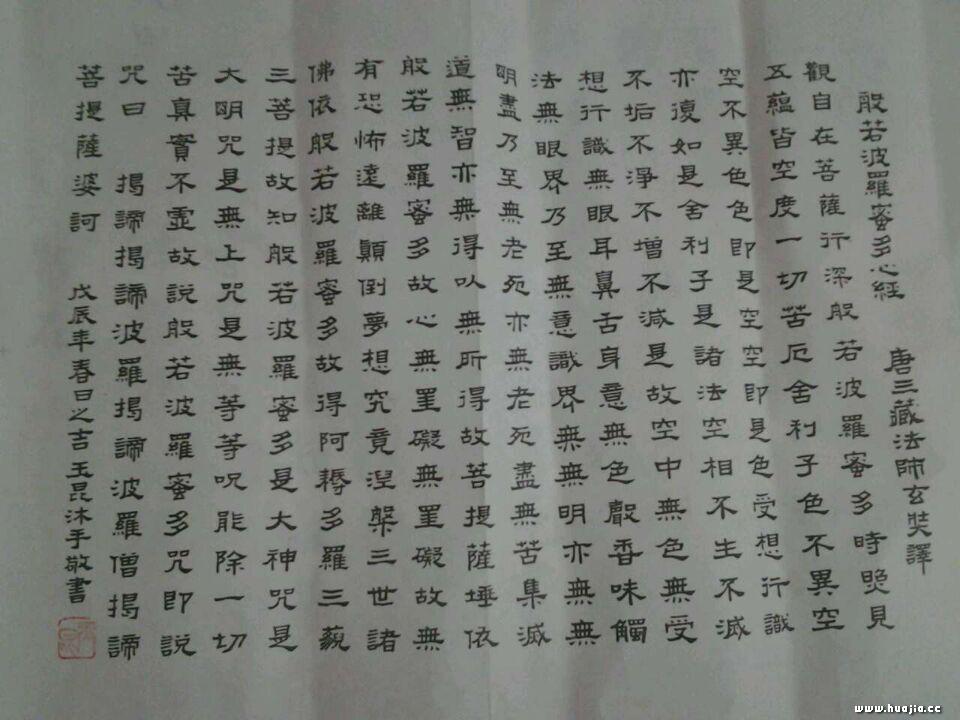 般若波羅蜜多心經 唐三藏法師玄奘譯
觀自在菩薩行深般若波羅蜜多時照見
五蘊皆空度一切苦厄舍利子色不異空
空不異色色即是空空即是色受想行識
亦復如是舍利子是諸法空相不生不滅
不垢不淨不增不減是故空中無色無受
想行識無眼耳鼻舌身意無色聲香味觸
法無眼界乃至無意識界無無明亦無無
明盡乃至無老死亦無老死盡無苦集滅
道無智亦無得以無所得故菩提薩埵依
般若波羅蜜多故心無罣礙無罣礙故無
有恐怖遠離顛倒夢想究竟涅槃三世諸
佛依般若波羅蜜多故得阿耨多羅三藐
三菩提故知般若波羅蜜多是大神咒是
大明咒是無上咒是無等等呪能除一切
苦真實不虛故說般若波羅蜜多咒即說
咒曰 揭諦揭諦波羅揭諦波羅僧揭諦
菩提薩婆訶 戊辰年春日之吉玉昆沐手敬書
www.huajia.cc